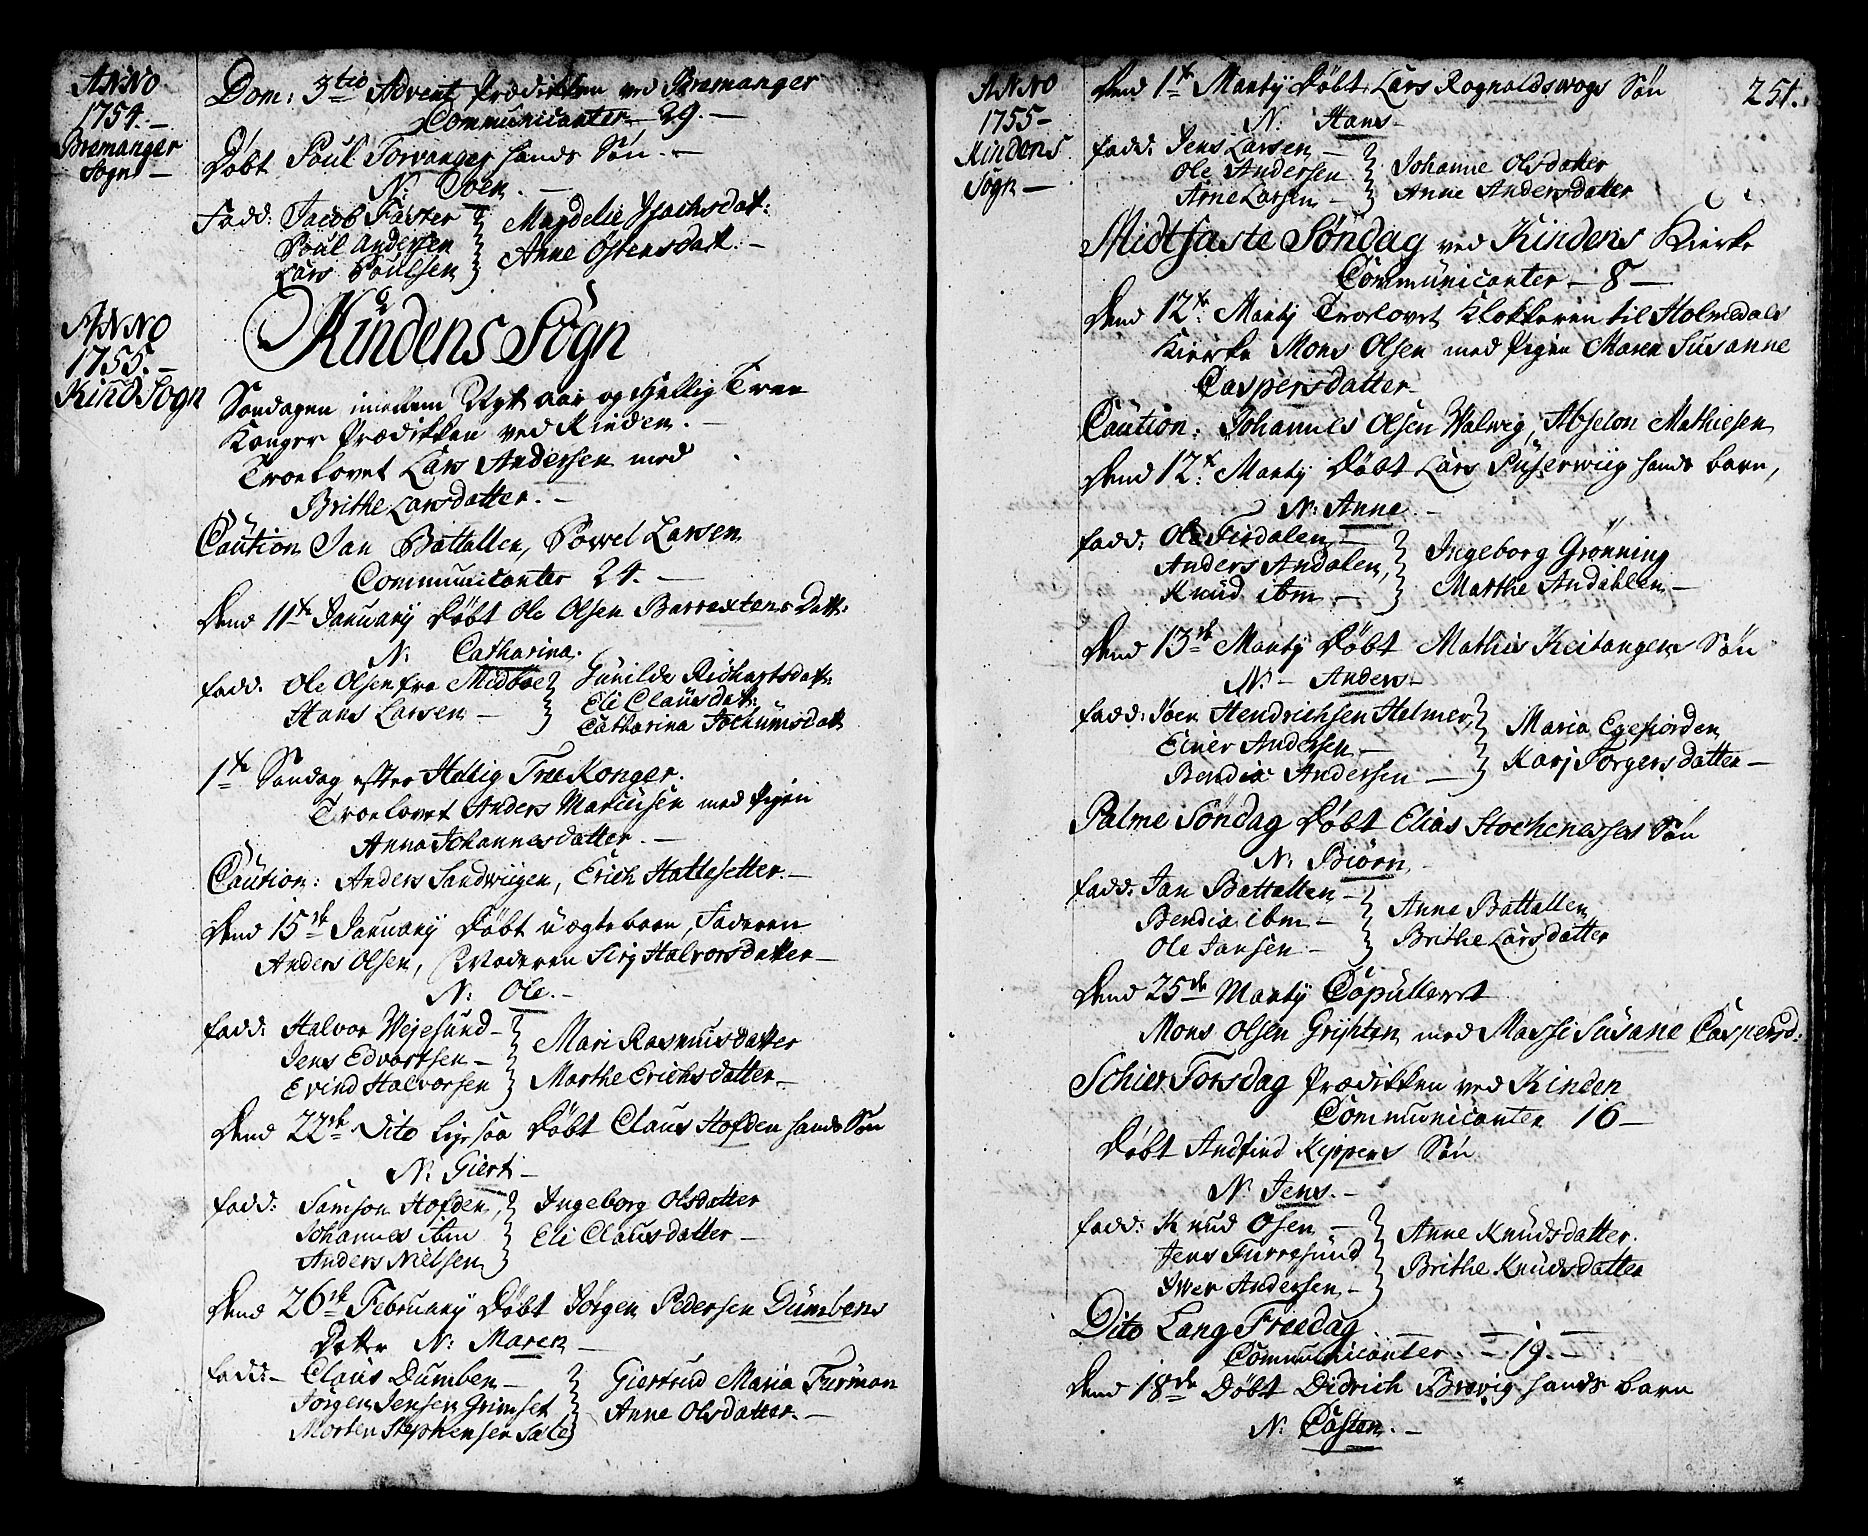 ANNO
1754.—
Bremanger
Sogn—
Dom: 3tio Advent Prædikken ved Bremanger
Communicanter 29.—
Døbt Poul Torvanger hands Søn.—
N: Joen.—
Fadd: Jacob Faster
Poul Andersen
Lars Poulsen
Magdelie Isachsdat:
Anne Ostensdat:—
ANNO
1755.—
Kind Sogn
Kindens Sogn
Søndagen imellem Nyt aar og Hellig Tree
Konger Prædikken ved Kinden.—
Troelovet Lars Andersen med
Brithe Larsdatter.—
Caution Jan Battallen, Powel Larsen
Communicanter 24.—
Dend 11te January Døbt Ole Olsen Barrextens Datt:
N: Catharina.
fadd: Ole Olsen fra Midbøe
Hans Larsen—
Gunilde Richartsdat:
Eli Clausdat:
Catharina Jochumsdat
1te Søndag efter Hellig Tree Konger.
Troelovet Anders Mariusen med Pigen
Anna Johannesdatter.—
Caution: Anders Sandwiigen, Erich Hattesetter.—
Dend 15de January Døbt uægte barn, Faderen
Anders Olsen, Moderen Sirj Halvorsdatter—
N: Ole.—
fadd: Halvor Wejesund—
Jens Edvartsen—
Evind Halvorsen
Mari Rasmusdatter
Marthe Erichsdatter—
Dend 22de Dito ligesaa Døbt Claus Hofden hands Søn
N: Giert—
fadd: Samson Hofden,
Johannes ibm
Anders Nielsen
Ingeborg Olsdatter
Eli Clausdatter—
Dend 26de February Døbt Jørgen Pedersen Dumbens
Datter N: Maren—
fadd:— Claus Dumben—
Jørgen Jensen Grimset
Morten Stephensen Sæle
Giertrud Maria Furman
Anne Olsdatter.—
ANNO
1755—
Kindens
Sogn—
251.
Dend 1te Martij Døbt Lars Rognaldswogs Søn
N: Hans—
fadd: Jens Larsen—
Ole Andersen
Arne Larsen—
Johanne Olsdatter
Anne Andersdatter
Midtfaste Søndag ved Kindens Kierke
Communicanter—8—
Dend 12te Martij Troelovet Klokkeren til Holmedals
Kierke Mons Olsen med Pigen Maren Susanne
Caspersdatter
Caution: Johannes Olsen Walwig, Abselon Mathiesen
Dend 12te Martij Døbt Lars Puserwiig hands barn,
N: Anne.—
fadd: Ole Firdalen,—
Anders Andalen,
Knud ibm—
Ingeborg Grønning
Marthe Andahlen—
Dend 13de Martij Døbt Mathis Keitangens Søn
N:— Anders—
fadd: Joen Hendrichsen Helmer,
Einer Andersen—
Bendix Andersen—
Maria Egefiorden
Karj Torgersdatter—
Palme Søndag Døbt Elias Stochenesses Søn
N: Biørn—
fadd: Jan Battalten—
Bendix ibm—
Ole Jansen—
Anne Battallen
Brithe Larsdatter
Dend 25de Martij Copulleret
Mons Olsen Grishten med Massi Susane Caspersd:
Schier Torsdag Prædikken ved Kinden
Communicanter 16—
Døbt Andfind Kippens Søn
N: Jens.—
fadd: Knud Osen—
Jens Furresund
Iver Andersen—
Anne Knudsdatter.
Brithe Knudsdatter
Dito Lang Freedag
Communicanter.—19.—
Dend 18de Døbt Didrich Brevig hands barn
N: Casten.—